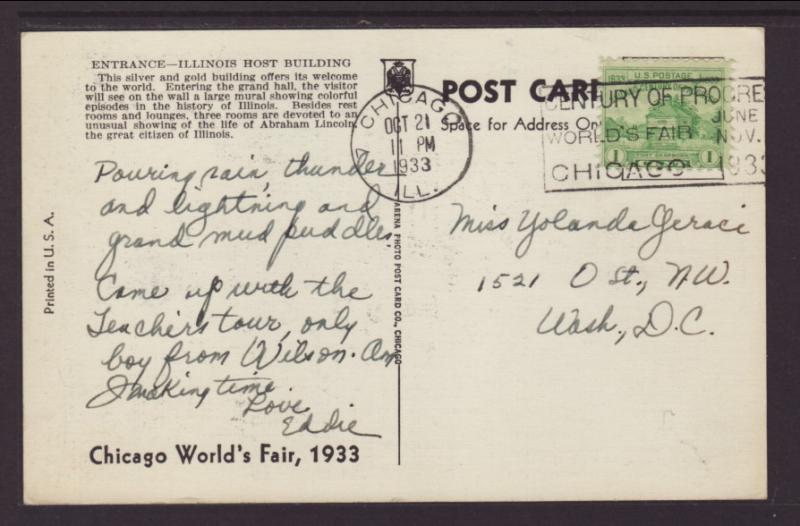 ENTRANCE—ILLINOIS HOST BUILDING
This silver and gold building offers its welcome
to the world. Entering the grand hall, the visitor
will see on the wall a large mural showing colorful
episodes in the history of Illinois. Besides rest
rooms and lounges, three rooms are devoted to an
unusual showing of the life of Abraham Lincoln,
the great citizen of Illinois.
Pouring rain, thunder
and lightning and
grand mud puddles,
Come up with the
Teacher's tour, only
boy from Wilson. Am
I making time.
Love
Eddie
Chicago World's Fair, 1933
Printed in U. S. A.
ARENA PHOTO POST CARD CO., CHICAGO
POST CARD
Space for Address On
CHICAGO
OCT 21
11 PM
1933
ILL.
1833 U.S. POSTAGE
1 1
CENTURY OF PROGRE
JUNE
WORLD'S FAIR NOV.
CHICAGO 1933
Miss Yolanda Geraci
1521 O St., N.W.
Wash., D.C.